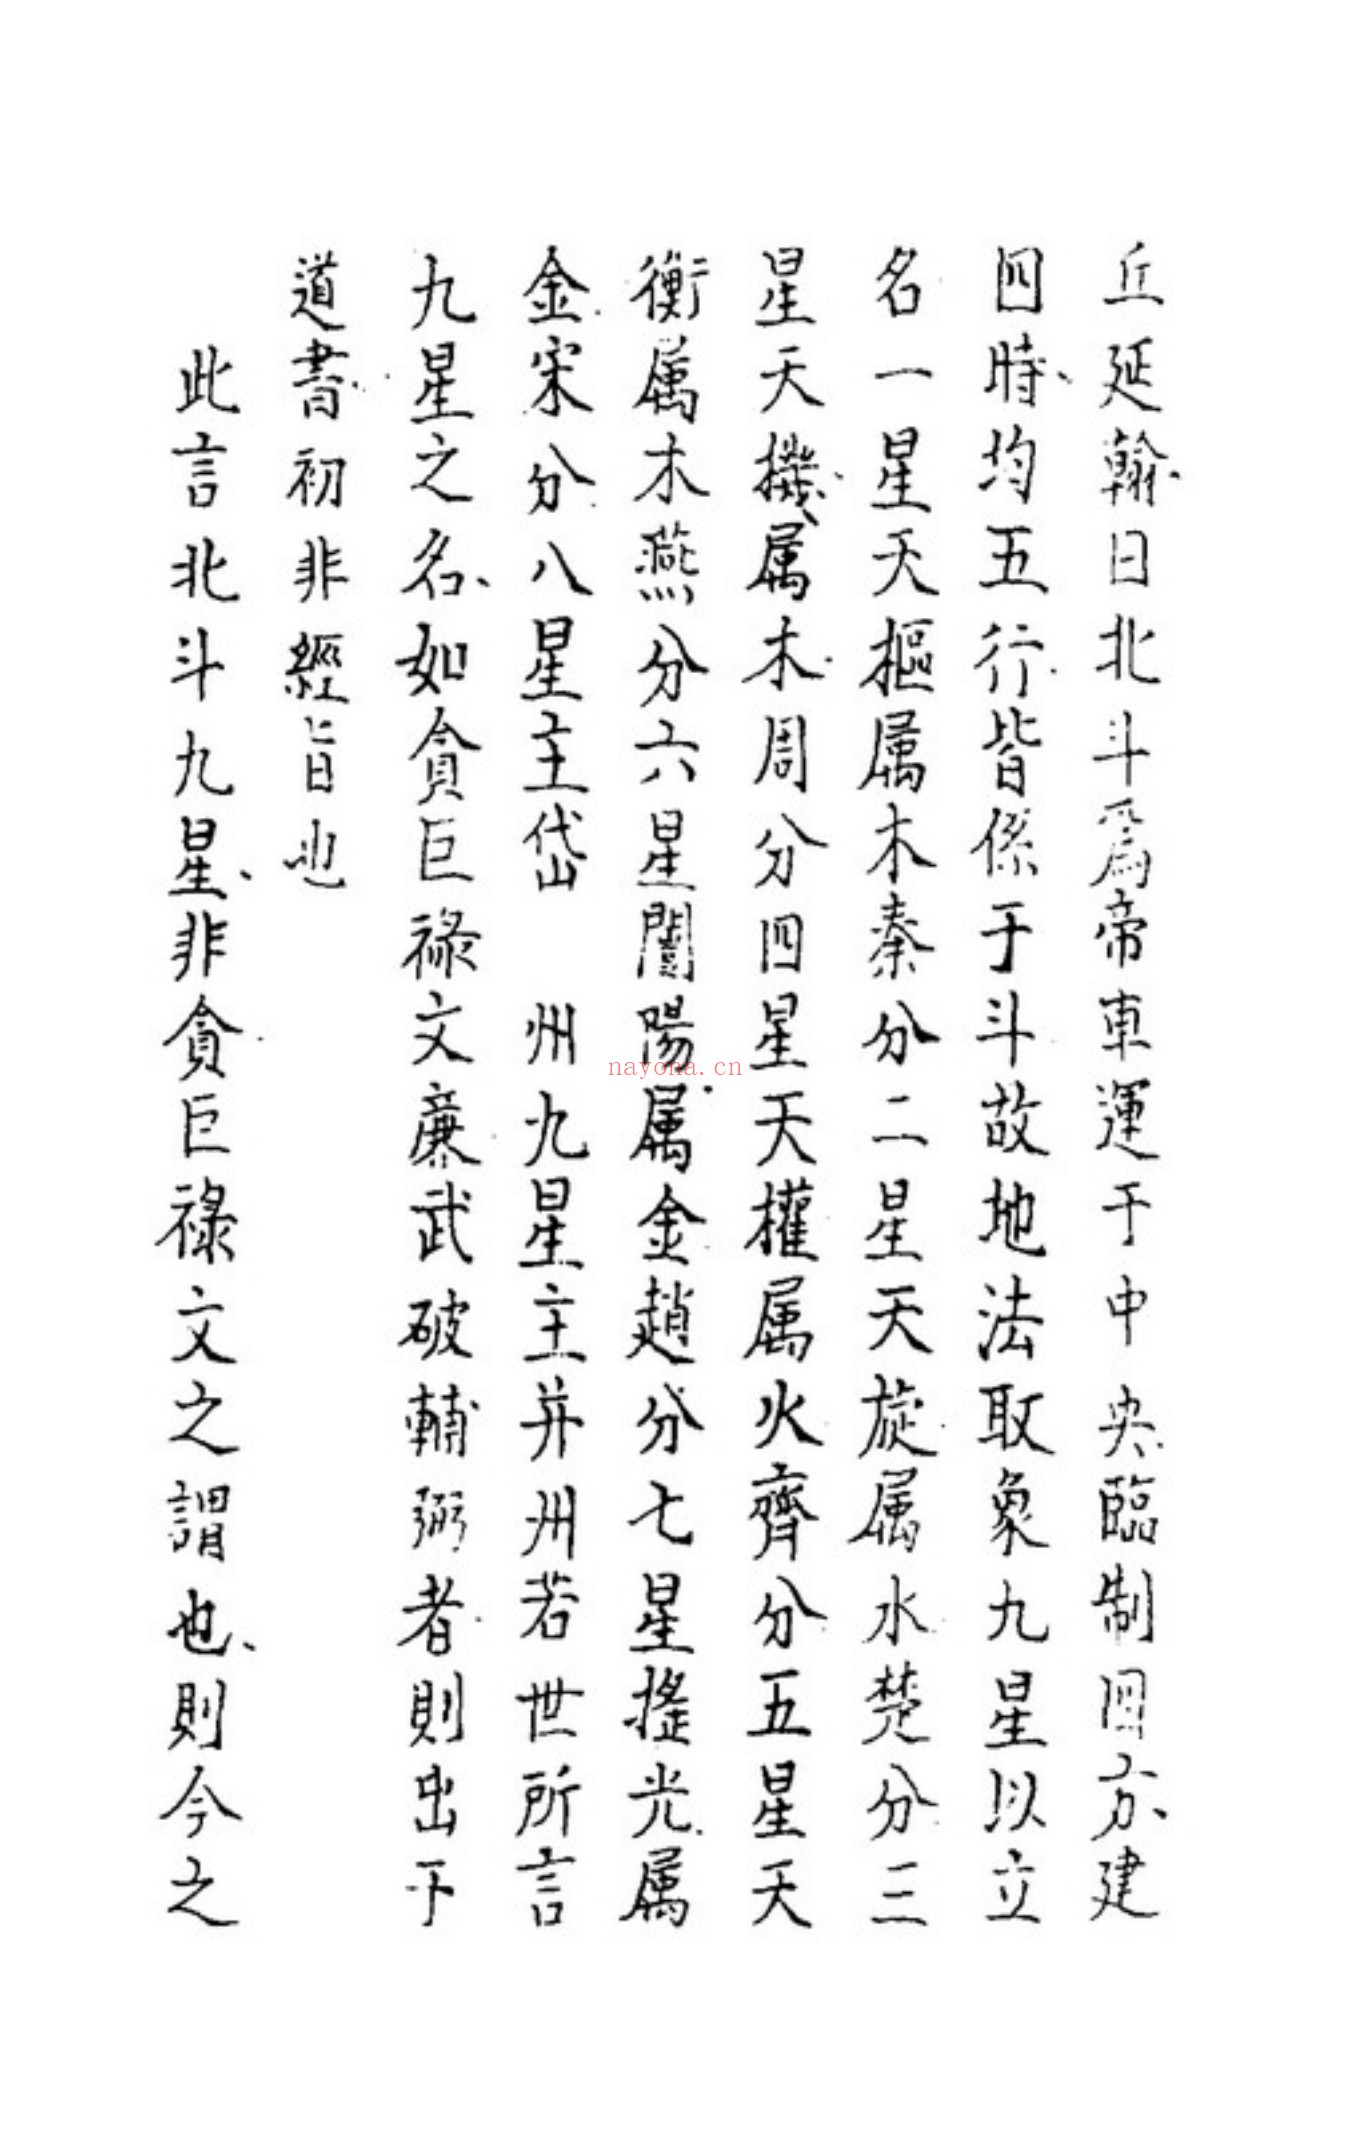 丘延翰曰北斗爲帝車運于中央臨制四方建
四時均五行皆係于斗故地法取象九星以立
名一星天樞属木秦分二星天旋属水楚分三
星天機属木周分四星天權属火齊分五星天
衡属木燕分六星闓陽属金趙分七星搖光属
金宋分八星主岱　州九星主并州若世所言
九星之名如貪巨祿文亷武破輔弼者則出于
道書初非經旨也
此言北斗九星非貪巨祿文之謂也則今之
nayona.cn